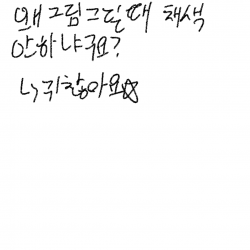 왜 그림 그릴 때 채색
안하냐구요?
너 귀찮아요☆